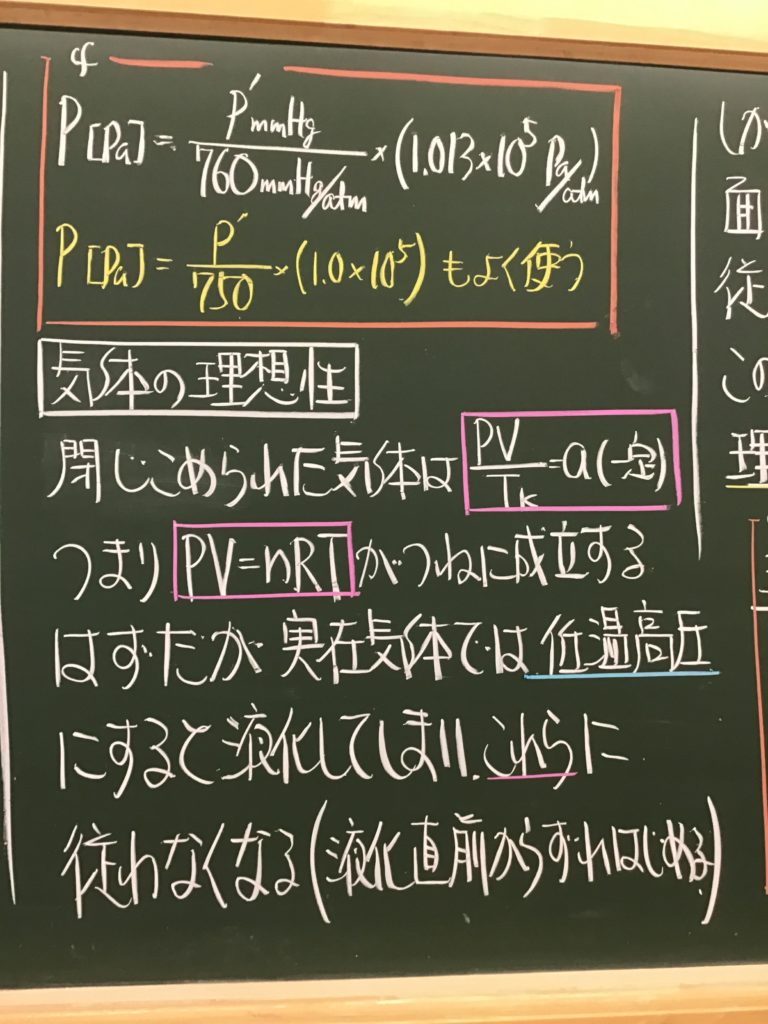 cf
P[Pa] = P′mmHg / 760mmHg/atm × (1.013×10⁵ Pa/atm)
P[Pa] = P′/750 × (1.0×10⁵) もよく使う
気体の理想性
閉じこめられた気体は PV/Tₖ = a(一定)
つまり PV=nRT がつねに成立する
はずだが 実在気体では 低温高圧
にすると液化してしまい、これらに
従わなくなる(液化直前からずれはじめる)
しか
面
従
この
理